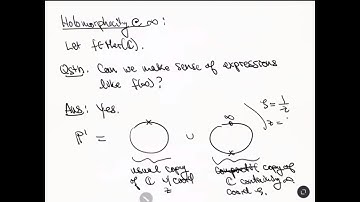 Holomorphicity @ ∞ :
Let f ∈ Mer(ℂ).
Qstn. Can we make sense of expressions
like f(∞)?
Ans: Yes.
ℙ¹ =
∪
∞
ζ = 1/z
z =
usual copy
of ℂ w/ coord
z
copy of
ℂ containing ∞
coord ζ.